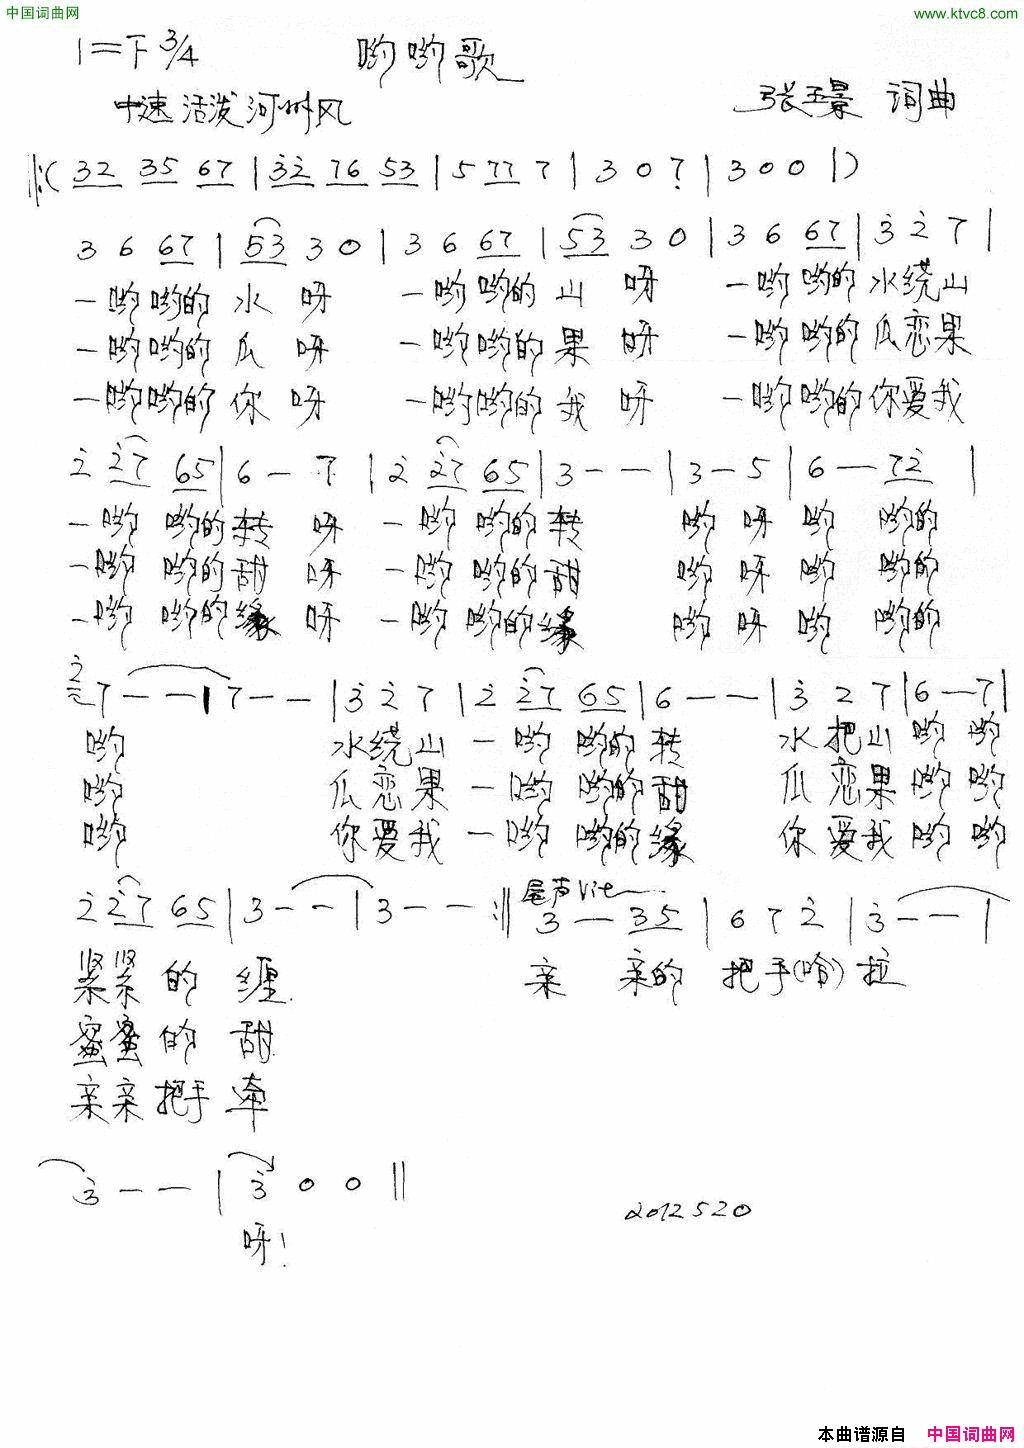 中国词曲网
www.ktvc8.com
1=F 3/4
哟哟歌
中速 活泼 河州风
张玉景 词曲
‖:( 32 35 67 | 3̇2̇ 76 53 | 5 77 7 | 3 0 7̣ | 3 0 0 | )
3 6 67 | 53 3 0 | 3 6 67 | 53 3 0 | 3 6 67 | 3̇ 2̇ 7 |
一哟哟的 水 呀 一哟哟的 山 呀 一哟哟的 水绕山
一哟哟的 瓜 呀 一哟哟的 果 呀 一哟哟的 瓜恋果
一哟哟的 你 呀 一哟哟的 我 呀 一哟哟的 你爱我
2̇ 2̇7 65 | 6 — 7 | 2̇ 2̇7 65 | 3 — — | 3 — 5 | 6 — 72̇ |
一哟 哟的 转 呀 一哟 哟的 转 哟 呀 哟 哟的
一哟 哟的 甜 呀 一哟 哟的 甜 哟 呀 哟 哟的
一哟 哟的 缘 呀 一哟 哟的 缘 哟 呀 哟 哟的
2̇ 7 — — | 7 — — | 3̇ 2̇ 7 | 2̇ 2̇7 65 | 6 — — | 3̇ 2 7 | 6 — 7 |
哟 水绕山 一哟 哟的 转 水把山 哟 哟
哟 瓜恋果 一哟 哟的 甜 瓜恋果 哟 哟
哟 你爱我 一哟 哟的 缘 你爱我 哟 哟
2̇ 2̇7 65 | 3 — — | 3 — — :‖ 尾声 3 — 35 | 6 7 2̇ | 3̇ — — |
紧紧 的 缠 亲 亲的 把手(哈)拉
蜜蜜 的 甜
亲亲 把手 牵
3̇ — — | 3̇ 0 0 ‖
呀！
2012 5 20
本曲谱源自 中国词曲网